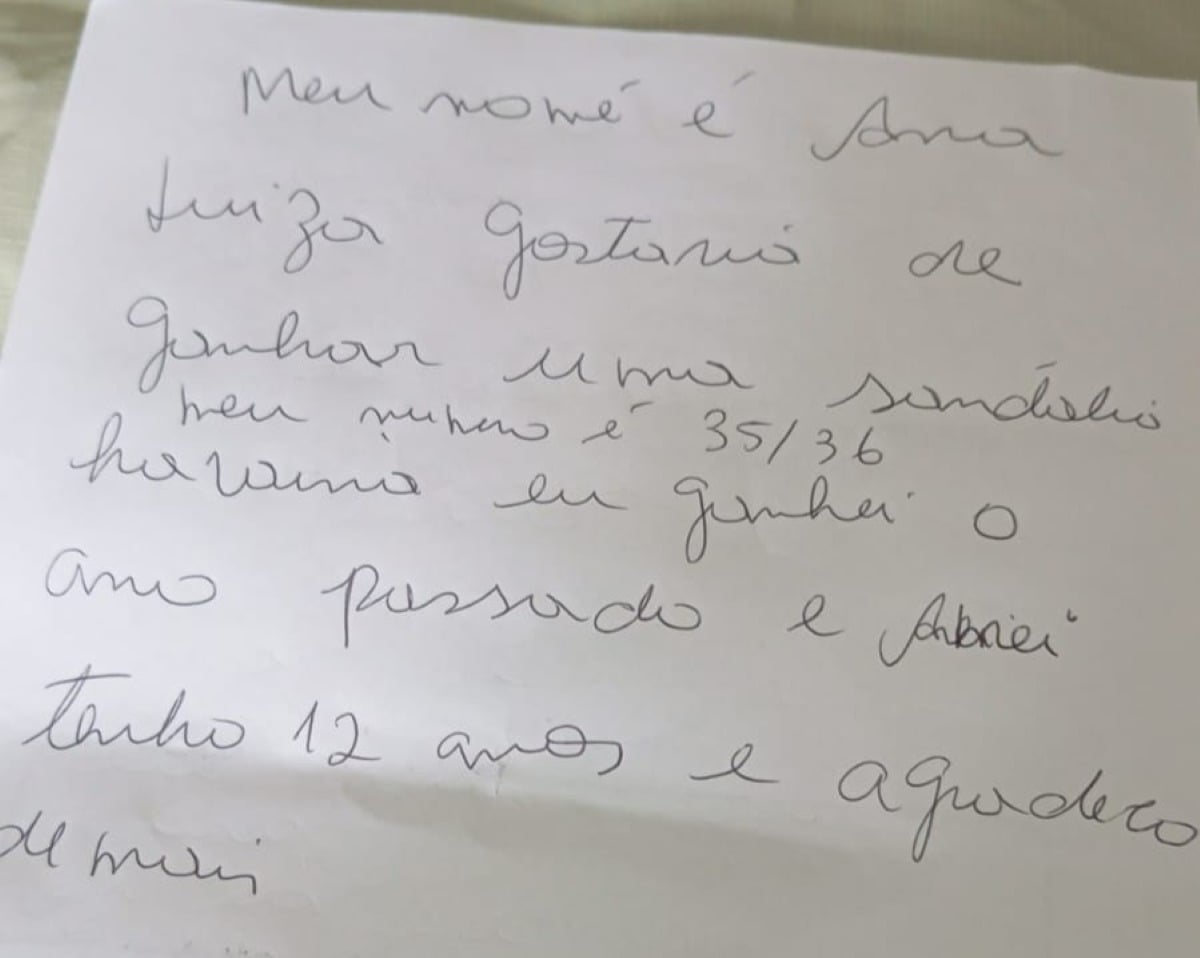 Meu nomé é Ana
Luiza gostaria de
ganhar uma sandália
meu numero é 35/36
havaina eu ganhei o
ano passado e
tenho 12 anos e agradeco
de mais